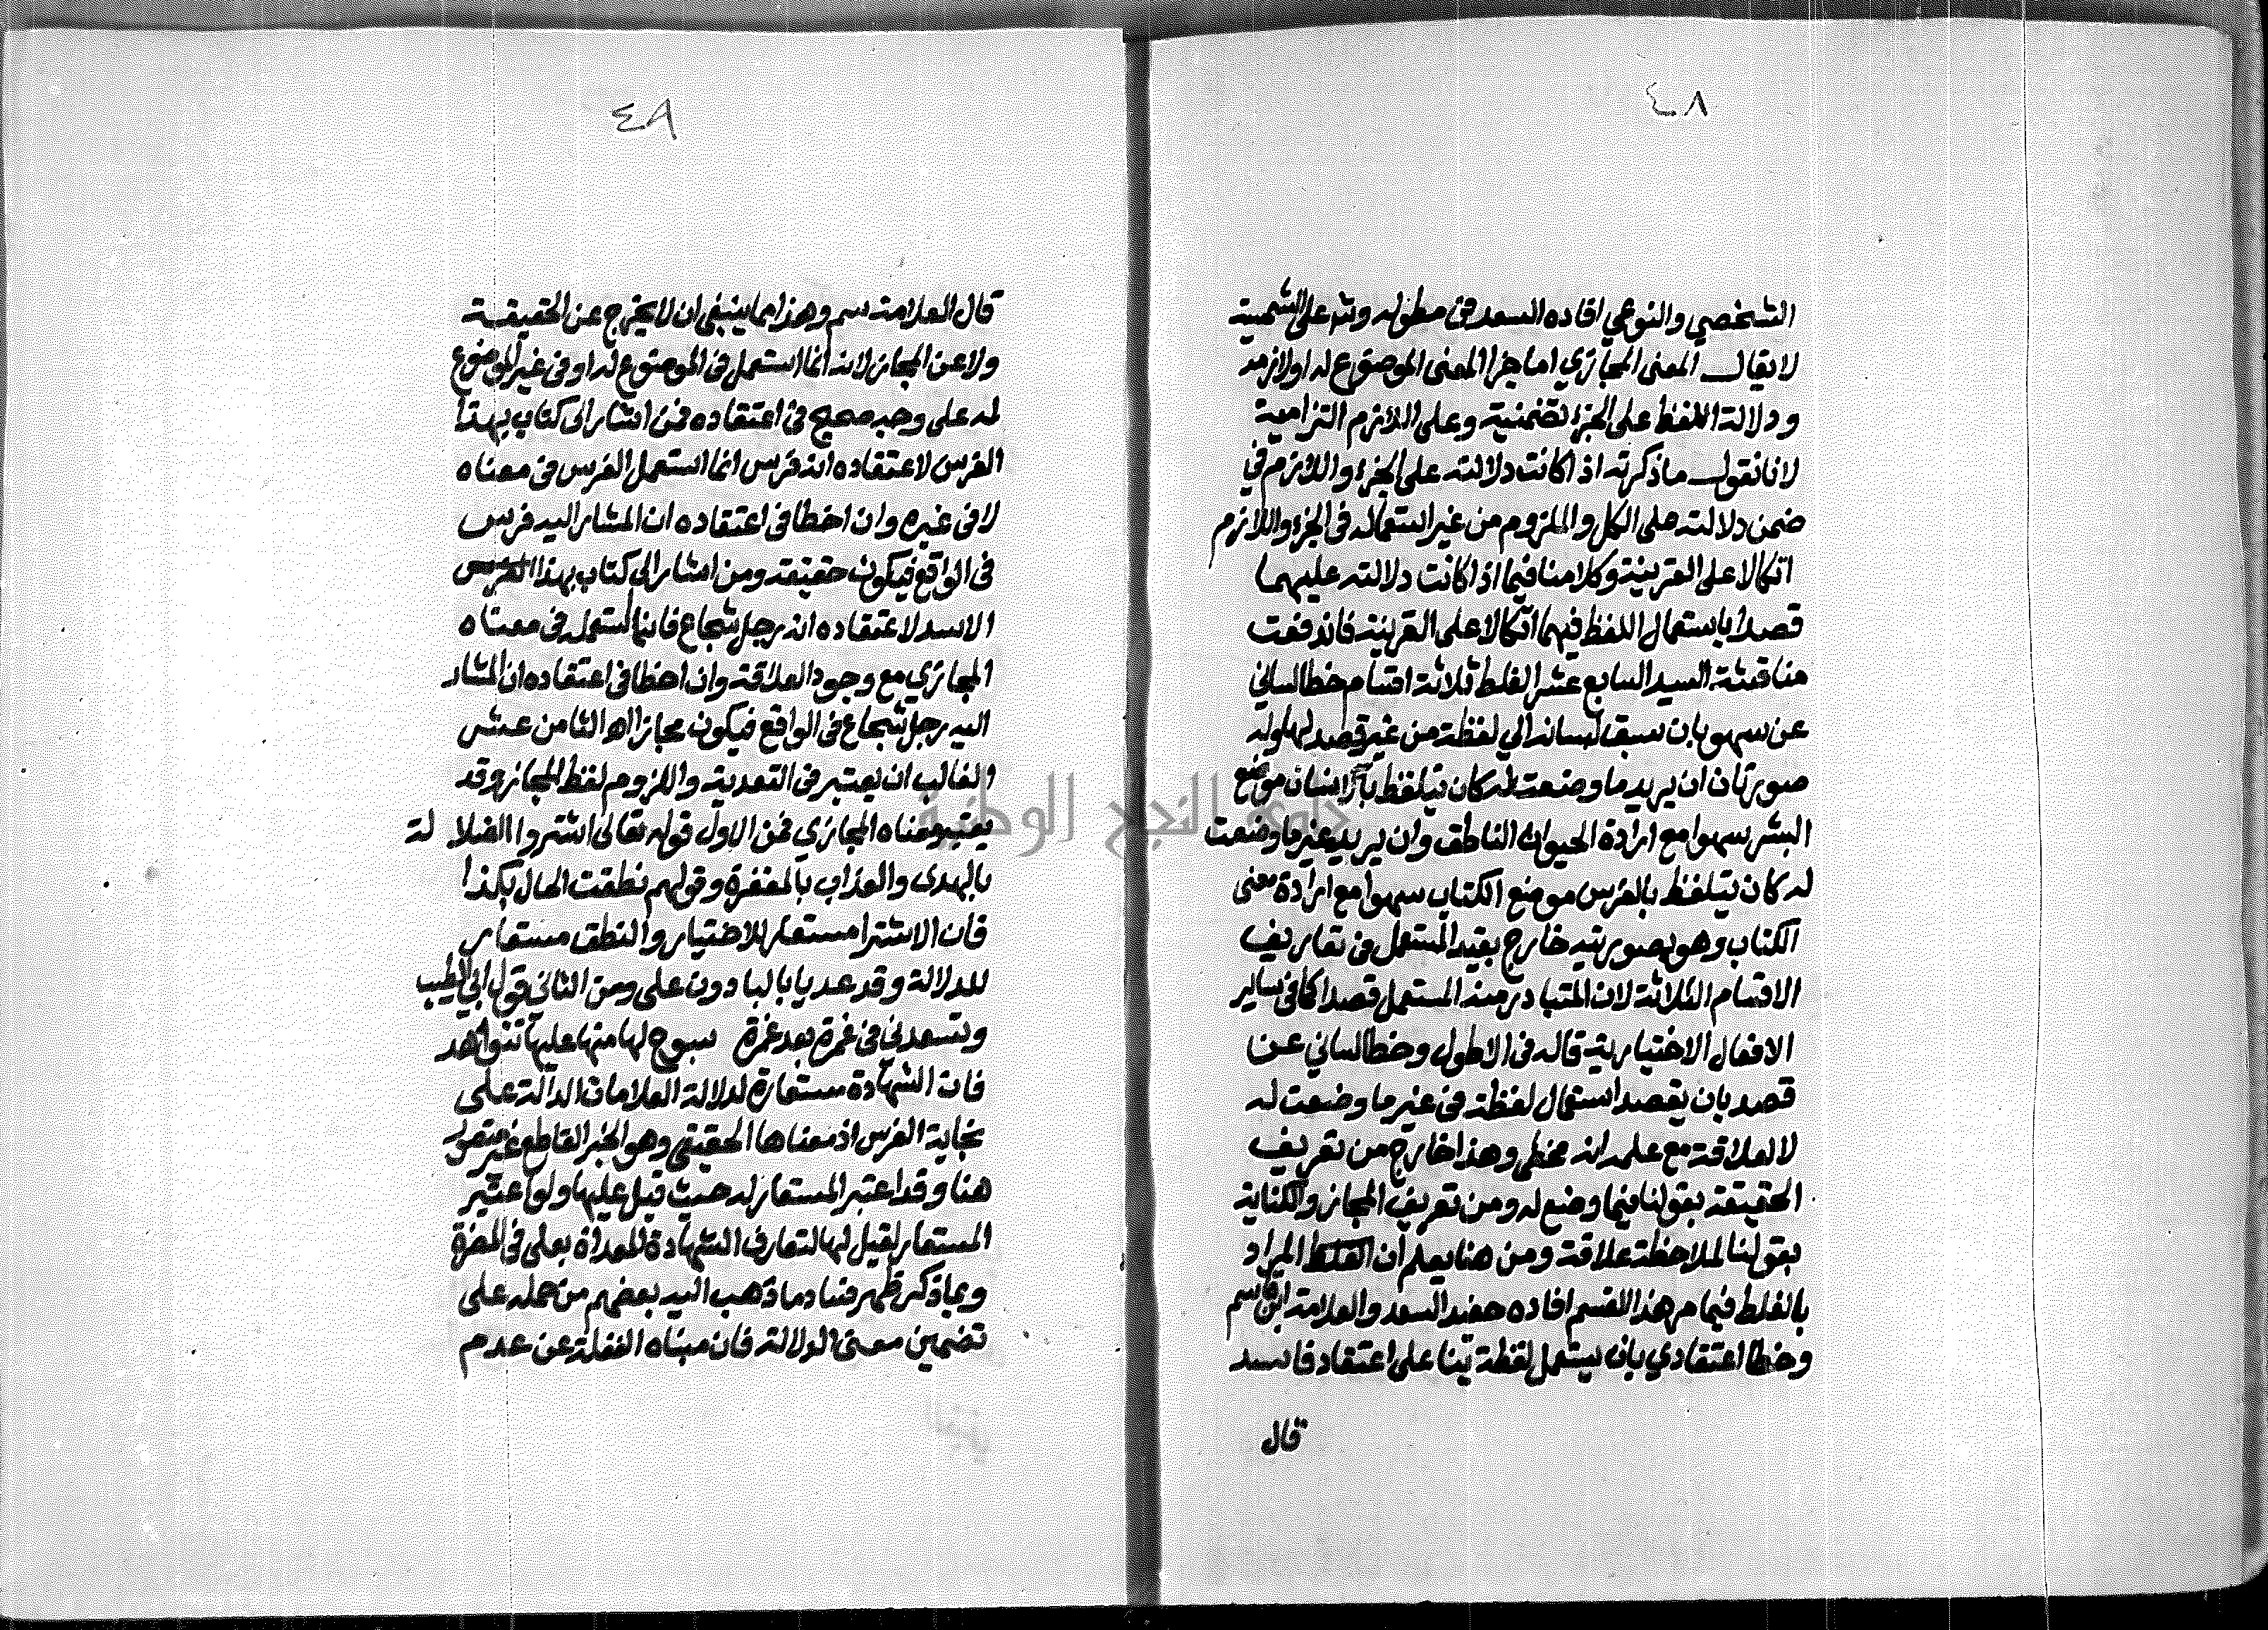 ٤٨
الشخصي والنوعي افاده السعد في مطوله وشرح على الشمسية
لا يقال المعنى المجازي اما جزا المعنى الموضوع له او لازمه
ودلالة اللفظ على الجزا تضمنية وعلى اللازم التزامية
لانا نقول ما ذكرته اذا كانت دلالته على الجزا واللازم في
ضمن دلالته على الكل والملزوم من غير استعماله في الجزء واللازم
اتكالا على القرينة وكلامنا فيما اذا كانت دلالته عليهما
قصدا باستعمال اللفظ فيهما اتكالا على القرينة فاندفعت
مناقشة السيد السابع عشر الغلط ثلاثة اقسام خطا لساني
عن سهو بان سبق لسانه الي لفظة من غير قصد لها وله
صورتان ان يريد ما وضعت له كان يتلفظ بانسان موضع
البشر سهوا مع ارادة الحيوان الناطق وان يريد غير ما وضعت
له كان يتلفظ بالفرس موضع الكتاب سهوا مع ارادة معنى
الكتاب وهو بصورتيه خارج بقيد المستعمل في تعاريف
الاقسام الثلاثة لان المتبادر منه المستعمل قصدا كما في ساير
الافعال الاختيارية قاله في الاطول وخطا لساني عن
قصد بان يقصد استعمال لفظة في غير ما وضعت له
لا لعلاقة مع علمه انه مخطي وهذا خارج من تعريف
الحقيقة بقولنا فيما وضع له ومن تعريف المجاز والكناية
بقولنا لملاحظة علاقة ومن هنا يعلم ان الغلط المراد
بالغلط فيما مر هذا القسم افاده حفيد السعد والعلامة ابن قاسم
وخطا اعتقادي بان يستعمل لفظة بنا على اعتقاد فاسد
قال
٤٩
قال العلامة سم وهذا مما ينبغي ان لا يخرج عن الحقيقة
ولا عن المجاز لانه انما استعمل في الموضوع له او في غير الموضوع
له على وجه صحيح في اعتقاده فمن اشار الى كتاب بهذا
الفرس لاعتقاده انه فرس انما استعمل الفرس في معناه
لا في غيره وان اخطا في اعتقاده ان المشار اليه فرس
في الواقع فيكون حقيقة ومن اشار الى كتاب بهذا الفرس
الاسد لاعتقاده انه رجل شجاع فانما استعمله في معناه
المجازي مع وجود العلاقة وان اخطا في اعتقاده ان المشار
اليه رجل شجاع في الواقع فيكون مجازا اه الثامن عشر
الغالب ان يعتبر في التعدية واللزوم لفظ المجاز وقد
يعتبر معناه المجازي فمن الاول قوله تعالى اشتروا الضلالة
بالهدى والعذاب بالمغفرة وقولهم نطقت الحال بكذا
فان الاشترا مستعار للاختيار والنطق مستعار
للدلالة وقد عديا بالبا دون على ومن الثاني قول ابي الطيب
وتسعدني في غمرة بعد غمرة سبوح لها منها عليها شواهد
فان الشهادة مستعارة لدلالة العلامات الدالة على
نجابة الفرس اذ معناها الحقيقي وهو الخبر القاطع غير متصور
هنا وقد اعتبر المستعار له حيث قيل عليها ولو اعتبر
المستعار لقيل لها لتعارف الشهادة المعداة بعلى في المضرة
وبما ذكر ظهر فساد ما ذهب اليه بعضهم من حمله على
تضمين معنى الدلالة فان مبناه الغفلة عن عدم